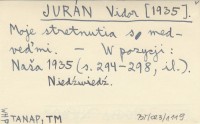 JURÁN Vidor [1935].
Moje stretnutia s med-
veďmi. — W pozycji:
Naša 1935 (s. 294-298, il.).
Niedźwiedź.
TANAP, TM